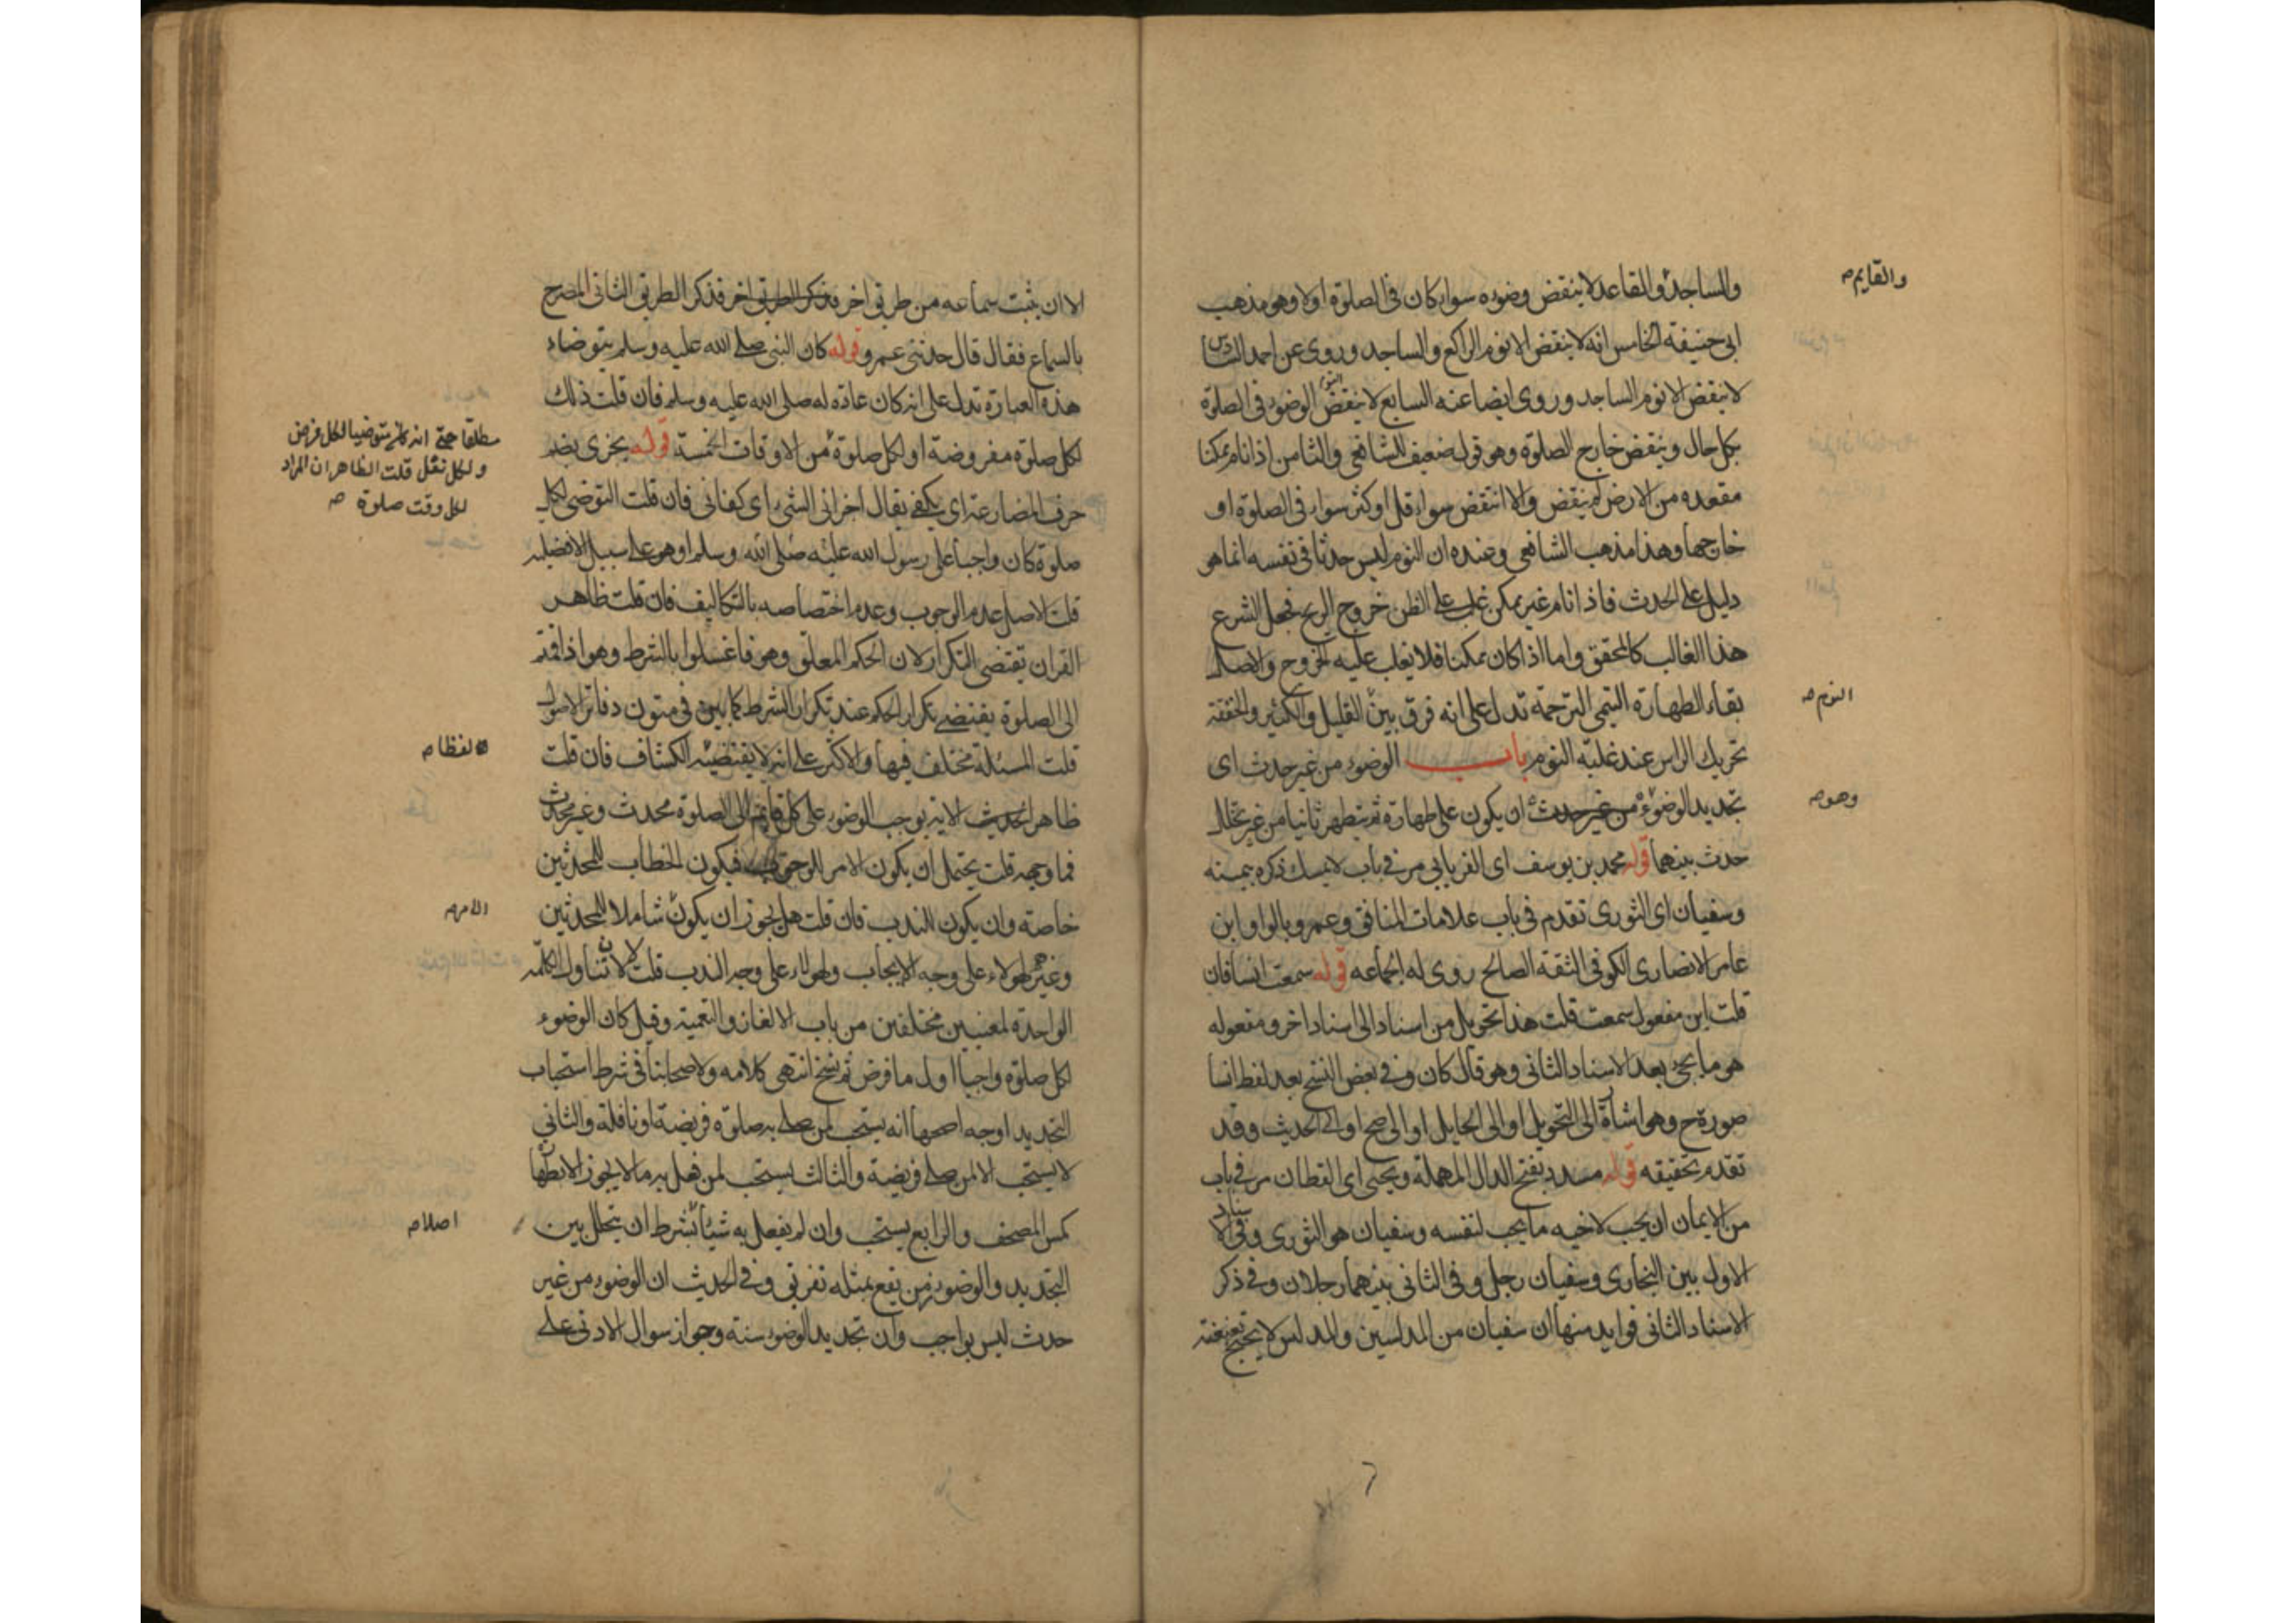 والساجد والقاعد لا ينقض وضوه سواء كان في الصلوة اولا وهو مذهب
والقايم صح
ابي حنيفة الخامس انه لا ينقض الا نوم الراكع والساجد وروى عن احمد السادس
لا ينقض الا نوم الساجد وروى ايضا عنه السابع لا ينقض النوم الوضوء في الصلوة
بكل حال وينقض خارج الصلوة وهو قول ضعيف للشافعي والثامن اذا نام ممكنا
مقعده من الارض لم ينقض والا انتقض سواء قل او كثر سواء في الصلوة او
خارجها وهذا مذهب الشافعي وعنده ان النوم ليس حدثا في نفسه انما هو
دليل على الحدث فاذا نام غير ممكن غلب على الظن خروج الريح فجعل الشرع
هذا الغالب كالمحقق واما اذا كان ممكنا فلا يغلب عليه الخروج والاصل
بقاء الطهارة التيمي الترجمة تدل على انه فرق بين القليل والكثير والخفقة
النوم صح
تحريك الراس عند غلبة النوم باب الوضوء من غير حدث اى
تجديد الوضوء من غير حدث ان يكون على طهارة ثم يتطهر ثانيا من غير تخلل
وهو صح
حدث بينهما قوله محمد بن يوسف اى الفريابي مر في باب لا يمسك ذكره بيمينه
وسفيان اى الثورى تقدم في باب علامات المنافق وعمرو بالواو ابن
عامر الانصارى الكوفي الثقة الصالح روى له الجماعه قوله سمعت انسا فان
قلت اين مفعول سمعت قلت هذا تحويل من اسناد الى اسناد اخر ومفعوله
هو ما يجيء بعد الاسناد الثاني وهو قال كان وفي بعض النسخ بعد لفظ انسا
صورة ح وهو اشارة الى التحويل او الى الحايل او الى صح او الى الحديث وقد
تقدم تحقيقه قوله مسدد بفتح الدال المهملة ويحيى اى القطان مر في باب
من الايمان ان يحب لاخيه ما يحب لنفسه وسفيان هو الثورى وفي الاسناد
الاول بين البخارى وسفيان رجل وفي الثاني بينهما رجلان وفي ذكر
الاسناد الثاني فوايد منها ان سفيان من المدلسين والمدلس لا يحتج بعنعنته
الا ان يثبت سماعه من طريق اخر فذكر الطريق اخر فذكر الطريق الثاني المصرح
بالسماع فقال قال حدثني عمرو قوله كان النبي صلى الله عليه وسلم يتوضاء
هذه العبارة تدل على انه كان عادة له صلى الله عليه وسلم فان قلت ذلك
لكل صلوة مفروضة او لكل صلوة من الاوقات الخمسة قوله يجزى بضم
مطلقا حتى انه كان متوضيا لكل فرض
ولكل نفل قلت الظاهر ان المراد
لكل وقت صلوة صح
حرف المضارعة اى يكفي يقال اجزاني الشيء اى كفاني فان قلت التوضى لكل
صلوة كان واجبا على رسول الله عليه صلى الله وسلم او هو على سبيل الافضلية
قلت الاصل عدم الوجوب وعدم اختصاصه بالتكاليف فان قلت ظاهر
القران يقتضى التكرار لان الحكم المعلق وهو فاغسلوا بالشرط وهو اذا قمتم
الى الصلوة يقتضي تكرار الحكم عند تكرار الشرط كما بين في متون دفاتر الاصول
قلت المسئلة مختلف فيها والاكثر على انه لا يقتضيه الكشاف فان قلت
لفظا صح
ظاهر الحديث الاية يوجب الوضوء على كل قايم الى الصلوة محدث وغير محدث
فما وجهه قلت يحتمل ان يكون الامر للوجوب فيكون الخطاب للمحدثين
خاصة وان يكون للندب فان قلت هل يجوز ان يكون شاملا للمحدثين
الامر صح
وغيرهم لهولاء على وجه الايجاب ولهولاء على وجه الندب قلت لا لان تناول الكلمة
الواحدة لمعنيين مختلفين من باب الالغاز والتعمية وقيل كان الوضوء
لكل صلوة واجبا اول ما فرض ثم نسخ انتهى كلامه ولاصحابنا في شرط استحباب
التجديد اوجه اصحها انه يستحب لمن صلى به صلوة فريضة او نافلة والثاني
لا يستحب الا لمن صلى فريضة والثالث يستحب لمن فعل به ما لا يجوز الا بطهارة
كمس المصحف والرابع يستحب وان لم يفعل به شيئا بشرط ان يتخلل بين
اصلا صح
التجديد والوضوء زمن يقع بمثله تفريق وفي الحديث ان الوضوء من غير
حدث ليس بواجب وان تجديد الوضوء سنة وجواز سوال الادنى على